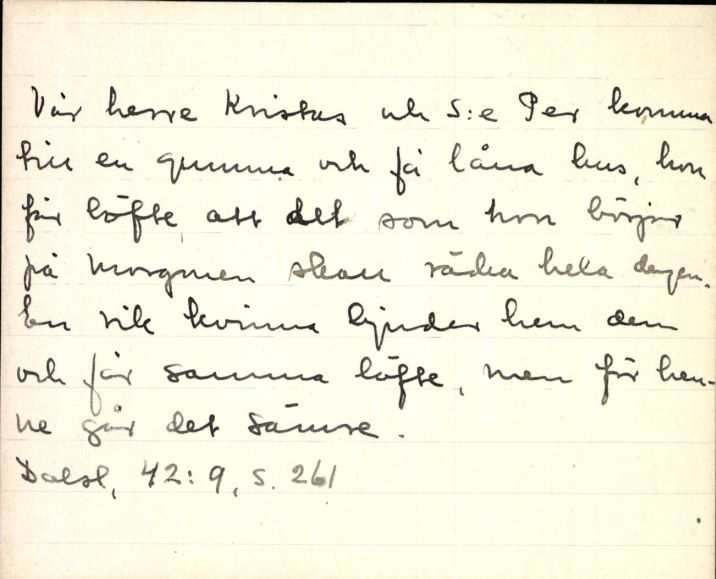 Vår herre Kristus och S:e Per komma
till en gumma och få låna hus, hon
får löfte att det som hon börjar
på morgonen skall räcka hela dagen.
En rik kvinna bjuder hem dem
och får samma löfte, men för hen-
ne går det sämre.
Dalsl, 42:9, s. 261